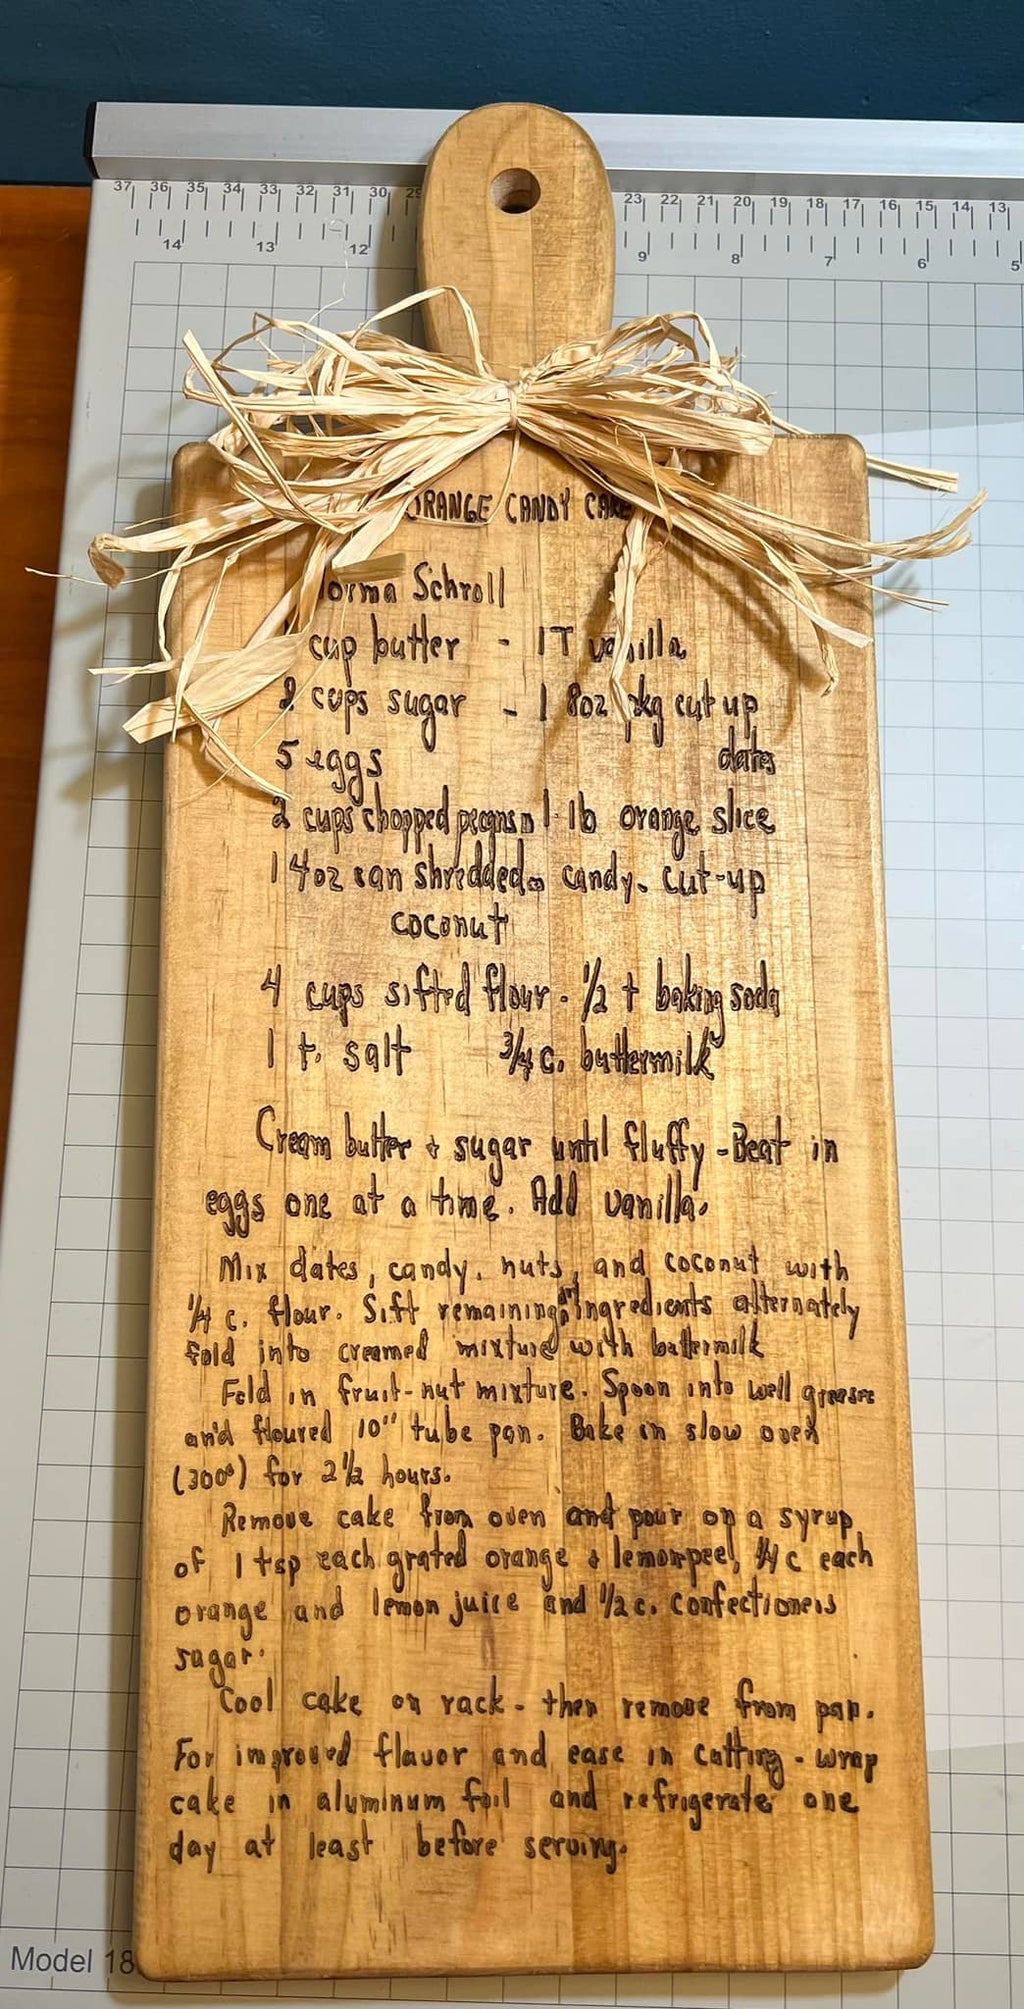 37 36 35 34 33 32 31 30 29 23 22 21 20 19 18 17 16 15 14 13
14 13 12 9 8 7 6 5
ORANGE CANDY CAKE
Norma Schroll
cup butter - 1T vanilla
2 cups sugar - 1 8oz pkg cut up
5 eggs dates
2 cups chopped pecans - 1 lb orange slice
1 4oz can shredded - candy. cut-up
coconut
4 cups sifted flour - 1/2 t baking soda
1 t. salt 3/4 c. buttermilk
Cream butter + sugar until fluffy - Beat in
eggs one at a time. Add vanilla.
Mix dates, candy, nuts, and coconut with
1/4 c. flour. Sift remaining dry ingredients alternately
fold into creamed mixture with buttermilk
Fold in fruit-nut mixture. Spoon into well greased
and floured 10" tube pan. Bake in slow oven
(300°) for 2 1/2 hours.
Remove cake from oven and pour on a syrup
of 1 tsp each grated orange & lemon peel, 1/4 c each
orange and lemon juice and 1/2 c. confectioners
sugar.
Cool cake on rack - then remove from pan.
For improved flavor and ease in cutting - wrap
cake in aluminum foil and refrigerate one
day at least before serving.
Model 18